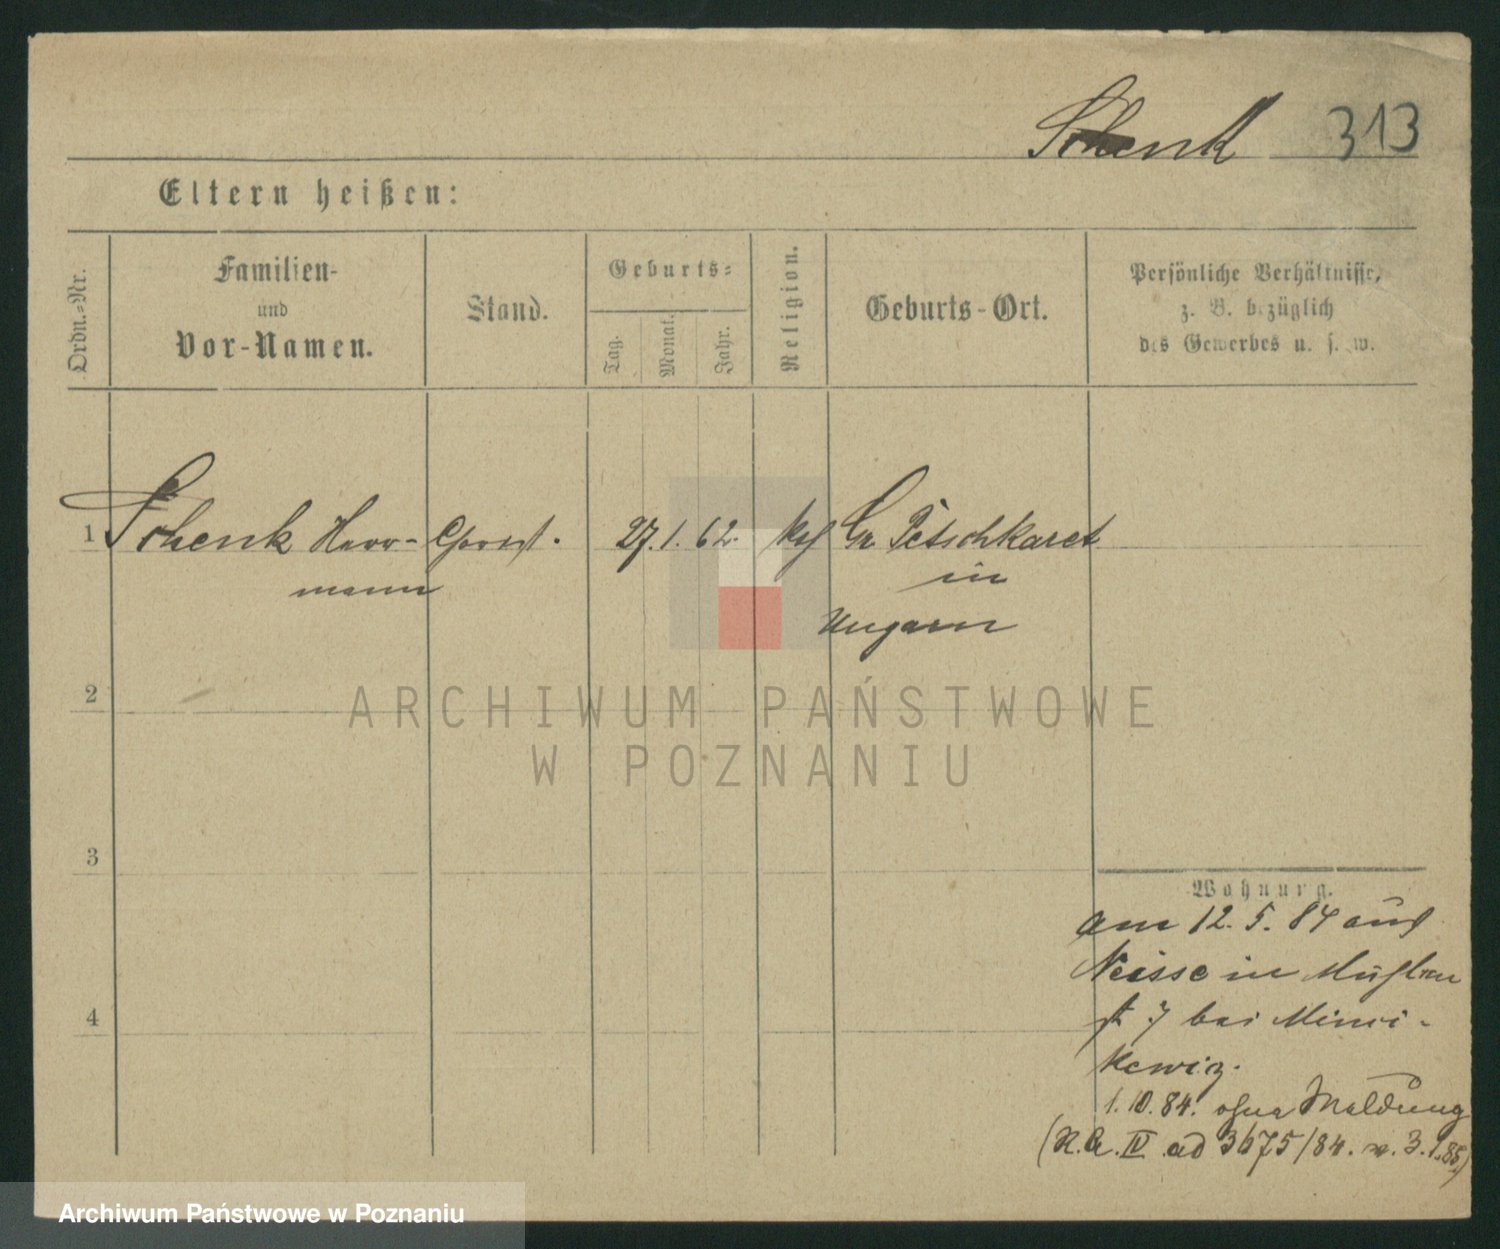 Schenk 313
Eltern heißen:
Ordn.-Nr.
Familien-
und
Vor-Namen.
Stand.
Geburts-
Tag.
Monat.
Jahr.
Religion.
Geburts-Ort.
Persönliche Verhältnisse,
z. B. bezüglich
des Gewerbes u. s. w.
1 Schenk Herr- 27. 1. 62. Gr. Petschkaret
mann in
Ungarn
2
3
4
Wohnung.
am 12. 5. 84 aus
Neisse in Mühlen
st 7 bei Minci-
kewiz.
1. 10. 84. ohne Meldung
(R. A. IV ad 3675/84. v. 3.1.85)
ARCHIWUM PAŃSTWOWE
W POZNANIU
Archiwum Państwowe w Poznaniu